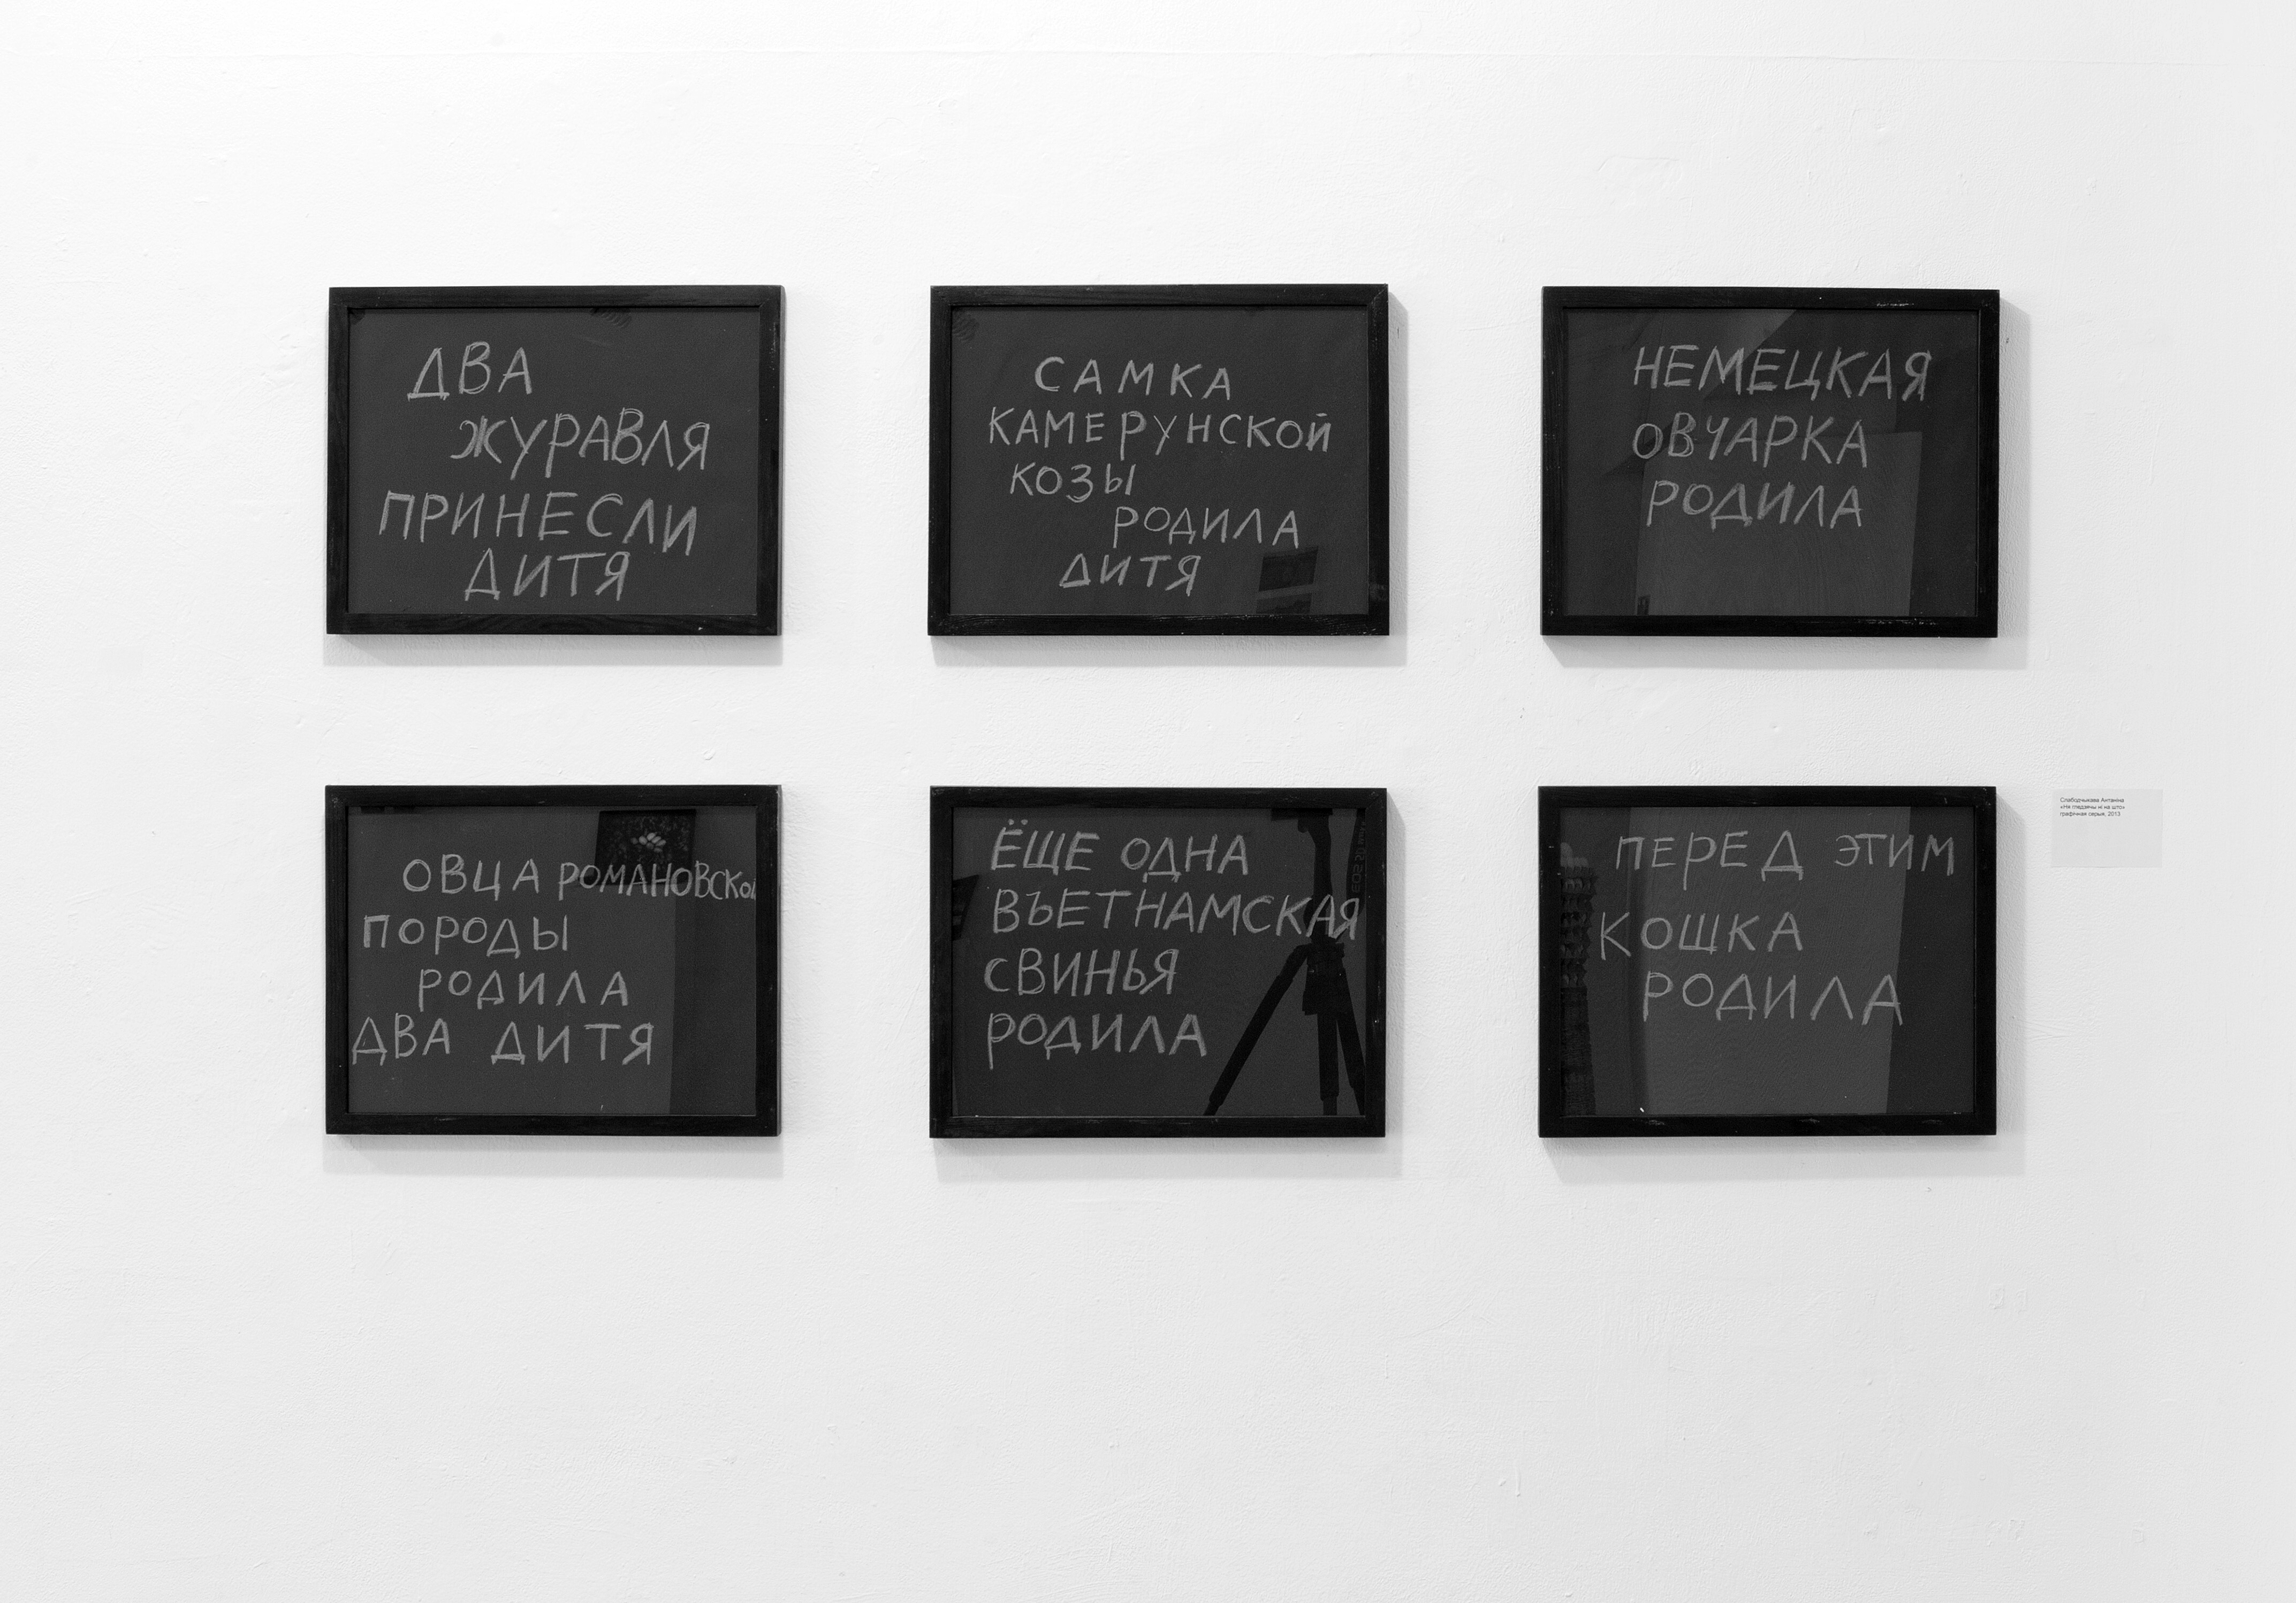 ДВА
ЖУРАВЛЯ
ПРИНЕСЛИ
ДИТЯ
САМКА
КАМЕРУНСКОЙ
КОЗЫ
РОДИЛА
ДИТЯ
НЕМЕЦКАЯ
ОВЧАРКА
РОДИЛА
ОВЦА РОМАНОВСКОЙ
ПОРОДЫ
РОДИЛА
ДВА ДИТЯ
ЁЩЕ ОДНА
ВЪЕТНАМСКАЯ
СВИНЬЯ
РОДИЛА
ПЕРЕД ЭТИМ
КОШКА
РОДИЛА
Слабодчыкава Антаніна
«Не гледзячы ні на што»
графічная серыя, 2013